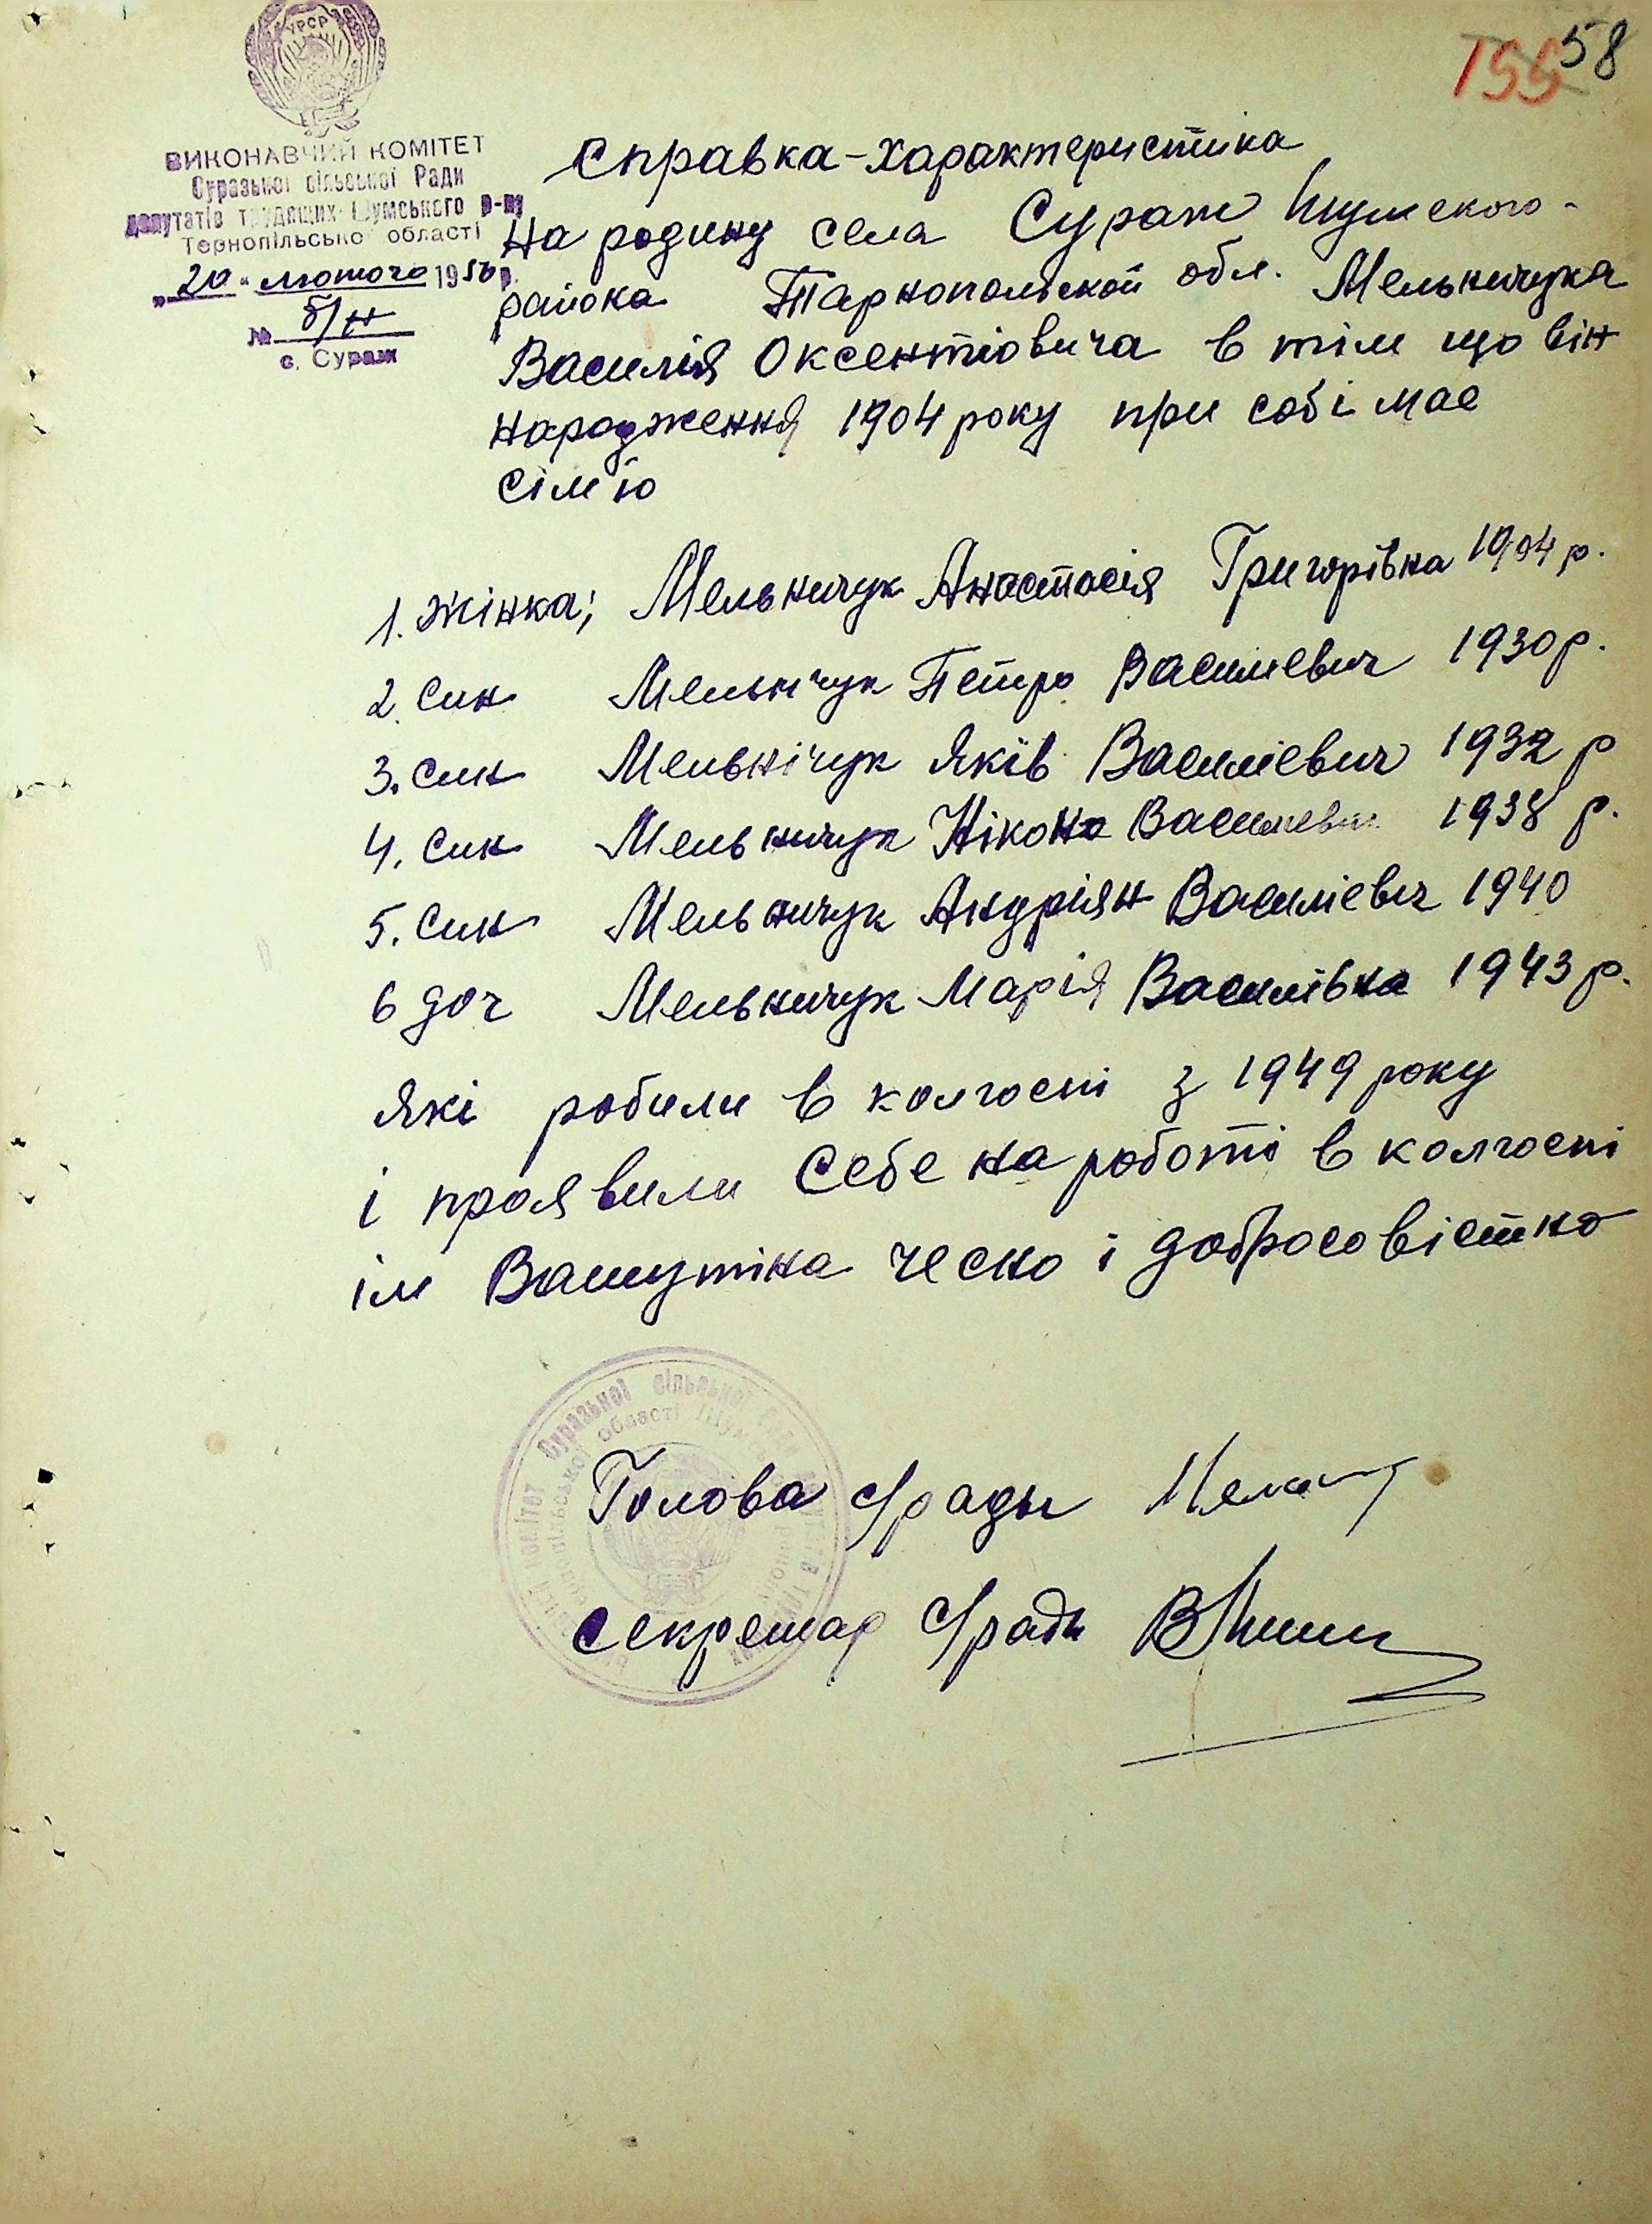 УРСР
155 58
ВИКОНАВЧИЙ КОМІТЕТ
Суразької сільської Ради
депутатів трудящих Шумського р-ну
Тернопільської області
„20" лютого 1956 р.
№ б/н
с. Сураж
Справка-характеристика
на родину села Сураж Шумского
района Тарнопольской обл. Мельничука
Василія Оксентіовича в тім що він
народження 1904 року при собі має
сім'ю
1. жінка; Мельничук Анастасія Григорівна 1904 р.
2. син Мельничук Петро Василиевич 1930 р.
3. син Мельнічук Яків Василіевич 1932 р
4. син Мельничук Нікона Василиевич 1938 р.
5. син Мельничук Андріян Василіевич 1940
6 доч Мельничук Марія Василівна 1943 р.
які робили в колгоспі з 1949 року
і проявили себе на роботі в колгоспі
ім Ватутіна ческо і добросовістно
Суразької сільської Ради
області Шумського
Голова с/рады
секретар с/ради